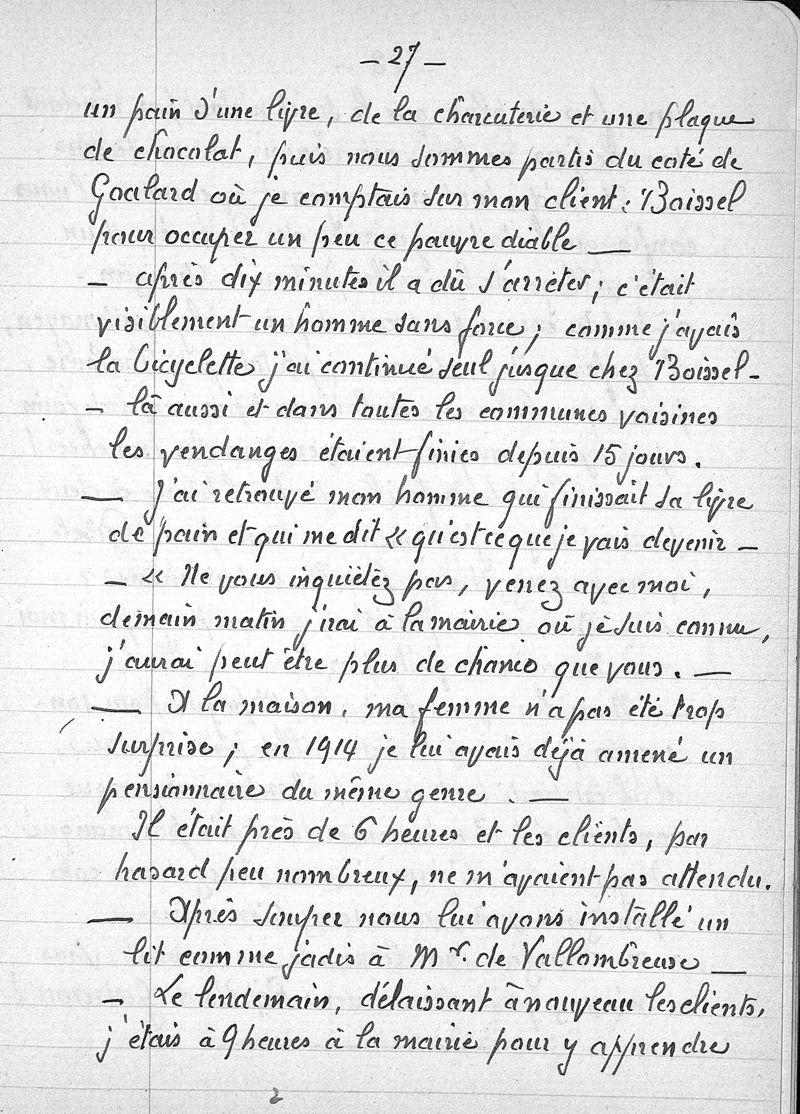 — 27 —
un pain d'une livre, de la charcuterie et une plaque
de chocolat, puis nous sommes partis du coté de
Goalard où je comptais sur mon client : Boissel
pour occuper un peu ce pauvre diable —
— après dix minutes il a dû s'arrêter ; c'était
visiblement un homme sans force ; comme j'avais
la bicyclette j'ai continué seul jusque chez Boissel —
— là aussi et dans toutes les communes voisines
les vendanges étaient finies depuis 15 jours.
— J'ai retrouvé mon homme qui finissait sa livre
de pain et qui me dit « qu'est ce que je vais devenir —
— « Ne vous inquiétez pas, venez avec moi,
demain matin j'irai à la mairie où je suis connu,
j'aurai peut être plus de chance que vous. —
— A la maison, ma femme n'a pas été trop
surprise ; en 1914 je lui avais déjà amené un
pensionnaire du même genre. —
Il était près de 6 heures et les clients, par
hasard peu nombreux, ne m'avaient pas attendu.
— Après souper nous lui avons installé un
lit comme jadis à Mr. de Vallombreuse —
— Le lendemain, délaissant à nouveau les clients,
j'étais à 9 heures à la mairie pour y apprendre
2